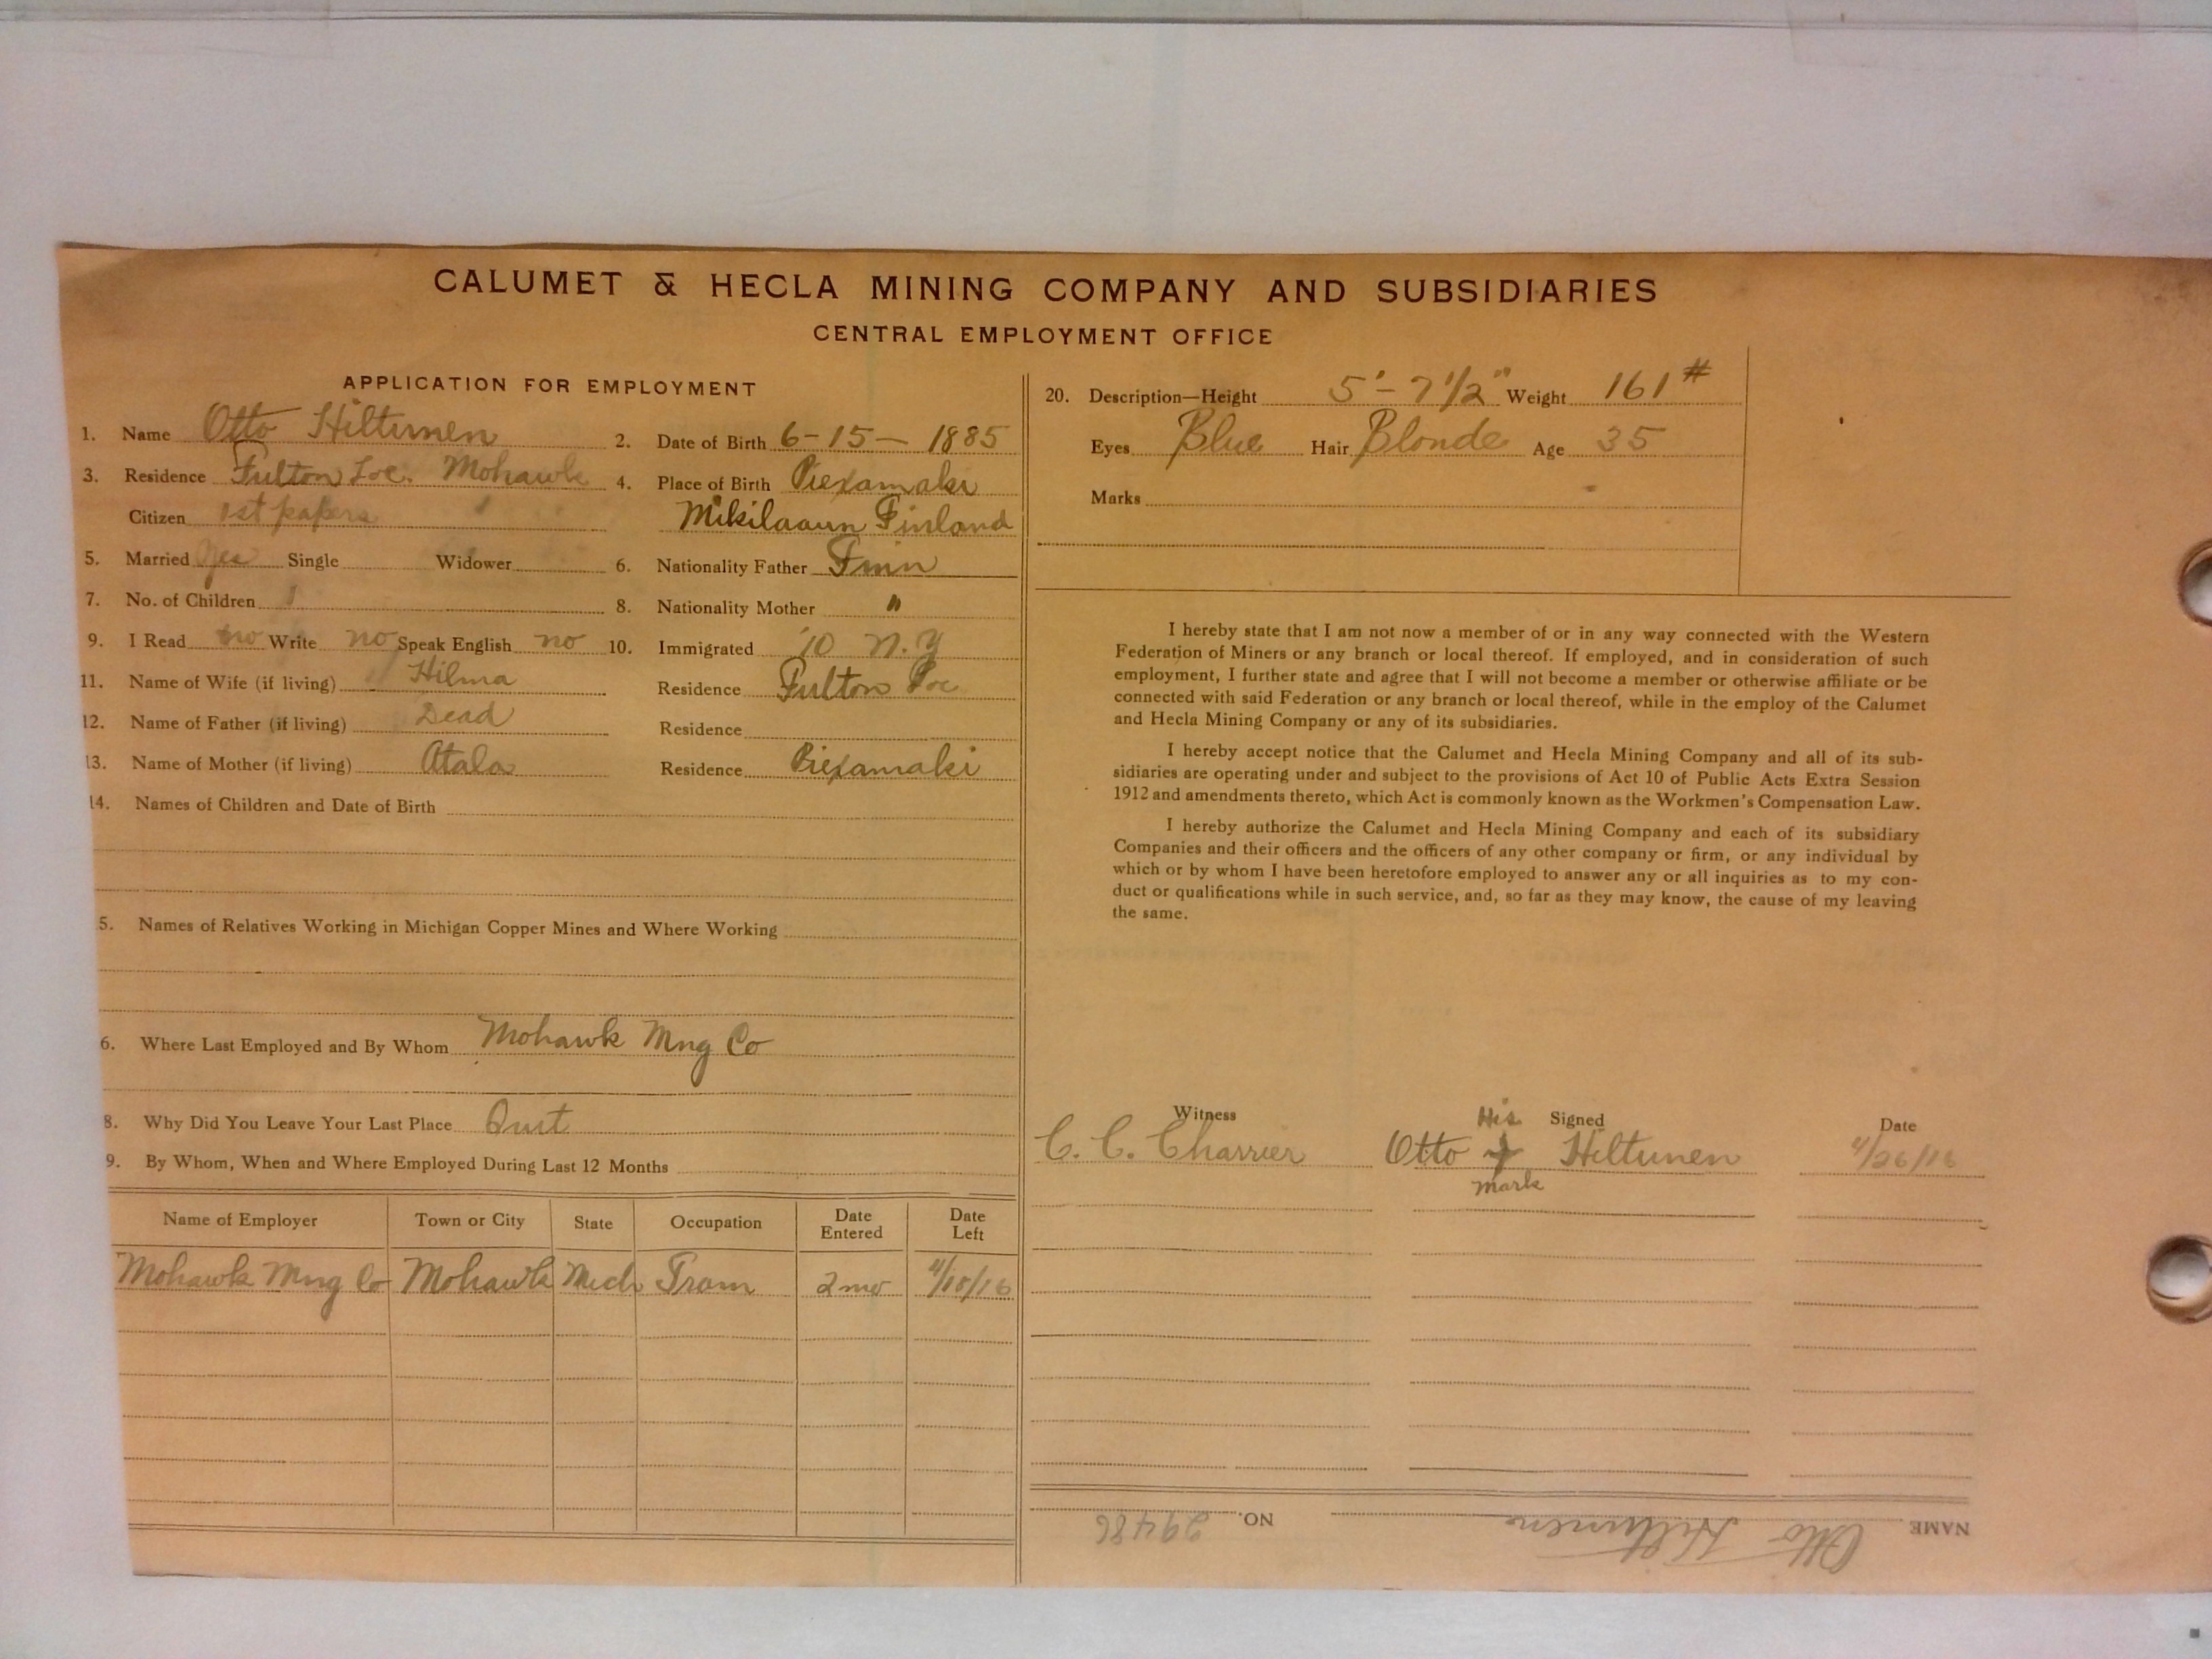 CALUMET & HECLA MINING COMPANY AND SUBSIDIARIES
CENTRAL EMPLOYMENT OFFICE
APPLICATION FOR EMPLOYMENT
1. Name Otto Hiltunen 2. Date of Birth 6-15-1885
3. Residence Fulton Loc. Mohawk 4. Place of Birth Piexamaki
Citizen 1st papers Mikilaaun Finland
5. Married Yes Single Widower 6. Nationality Father Finn
7. No. of Children 1 8. Nationality Mother "
9. I Read no Write no Speak English no 10. Immigrated '10 N.Y
11. Name of Wife (if living) Hilma Residence Fulton Loc
12. Name of Father (if living) Dead Residence
13. Name of Mother (if living) Atala Residence Piexamaki
14. Names of Children and Date of Birth
5. Names of Relatives Working in Michigan Copper Mines and Where Working
6. Where Last Employed and By Whom Mohawk Mng Co
8. Why Did You Leave Your Last Place Quit
9. By Whom, When and Where Employed During Last 12 Months
Name of Employer Town or City State Occupation Date Entered Date Left
Mohawk Mng Co Mohawk Mich Tram 2 mo 4/18/16
20. Description—Height 5'-7 1/2" Weight 161#
Eyes Blue Hair Blonde Age 35
Marks
I hereby state that I am not now a member of or in any way connected with the Western
Federation of Miners or any branch or local thereof. If employed, and in consideration of such
employment, I further state and agree that I will not become a member or otherwise affiliate or be
connected with said Federation or any branch or local thereof, while in the employ of the Calumet
and Hecla Mining Company or any of its subsidiaries.
I hereby accept notice that the Calumet and Hecla Mining Company and all of its sub-
sidiaries are operating under and subject to the provisions of Act 10 of Public Acts Extra Session
1912 and amendments thereto, which Act is commonly known as the Workmen's Compensation Law.
I hereby authorize the Calumet and Hecla Mining Company and each of its subsidiary
Companies and their officers and the officers of any other company or firm, or any individual by
which or by whom I have been heretofore employed to answer any or all inquiries as to my con-
duct or qualifications while in such service, and, so far as they may know, the cause of my leaving
the same.
Witness His Signed Date
C. C. Charrier Otto + Hiltunen 4/26/16
mark
NAME Otto Hiltunen NO. 29486